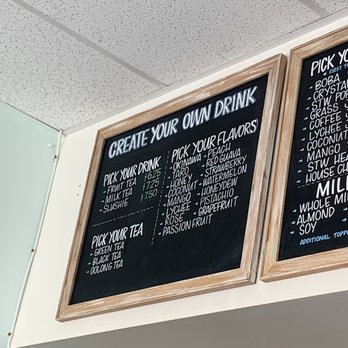 CREATE YOUR OWN DRINK
PICK YOUR DRINK
- FRUIT TEA
- MILK TEA
- SLUSHIE
PICK YOUR TEA
- GREEN TEA
- BLACK TEA
- OOLONG TEA
PICK YOUR FLAVORS
- OKINAWA - PEACH
- TARO - RED GUAVA
- HONEY - STRAWBERRY
- COCONUT - WATERMELON
- MANGO - HONEYDEW
- LYCHEE - PISTACHIO
- ROSE - GRAPEFRUIT
- PASSION FRUIT
PICK YO
- BOBA
- CRYSTA
- STW POP
- GRASS
- COFFEE
- LYCHEE
- COCONUT
- MANGO
- STW HE
- HOUSE CH
MIL
- WHOLE MI
- ALMOND
- SOY
ADDITIONAL TOPP